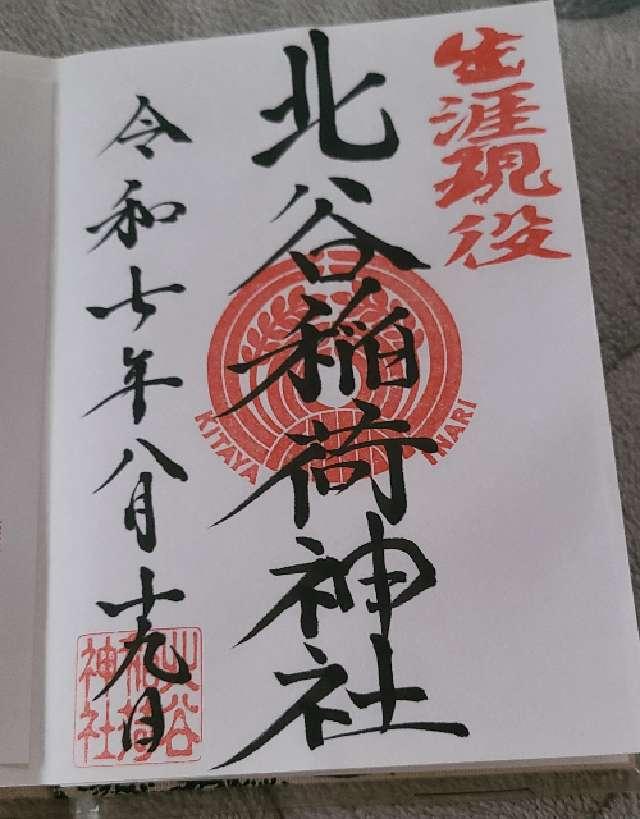 生涯現役
北谷稲荷神社
KITAYA INARI
令和七年八月十九日
北谷
稲荷
神社